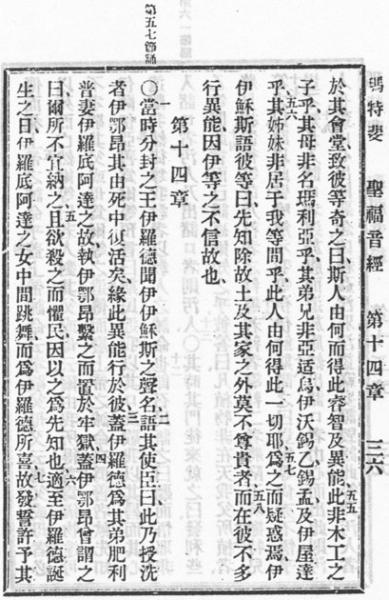 瑪特斐 聖福音經 第十四章 三六
第五七端誦
於其會堂致彼等奇之曰斯人由何而得此睿智及異能此非木工之
五五
子乎其母非名瑪利亞乎其弟兄非亞适烏伊沃錫乙錫孟及伊屋達
五六
乎其姊妹非居于我等間乎此人由何得此一切耶爲之而疑惑焉伊
五七
伊穌斯語彼等曰先知除故土及其家之外莫不尊貴者而在彼不多
五八
行異能因伊等之不信故也
第十四章
○當時分封之王伊羅德聞伊伊穌斯之聲名語其使臣曰此乃授洗
一 二
者伊鄂昂其由死中復活矣緣此異能行於彼蓋伊羅德爲其弟肥利
三
普妻伊羅底阿達之故執伊鄂昂繫之而置於牢獄蓋伊鄂昂曾謂之
四
曰爾所不宜納之且欲殺之而懼民因以之爲先知也適至伊羅德誕
五 六
生之日伊羅底阿達之女中間跳舞而爲伊羅德所喜故發誓許予其
七